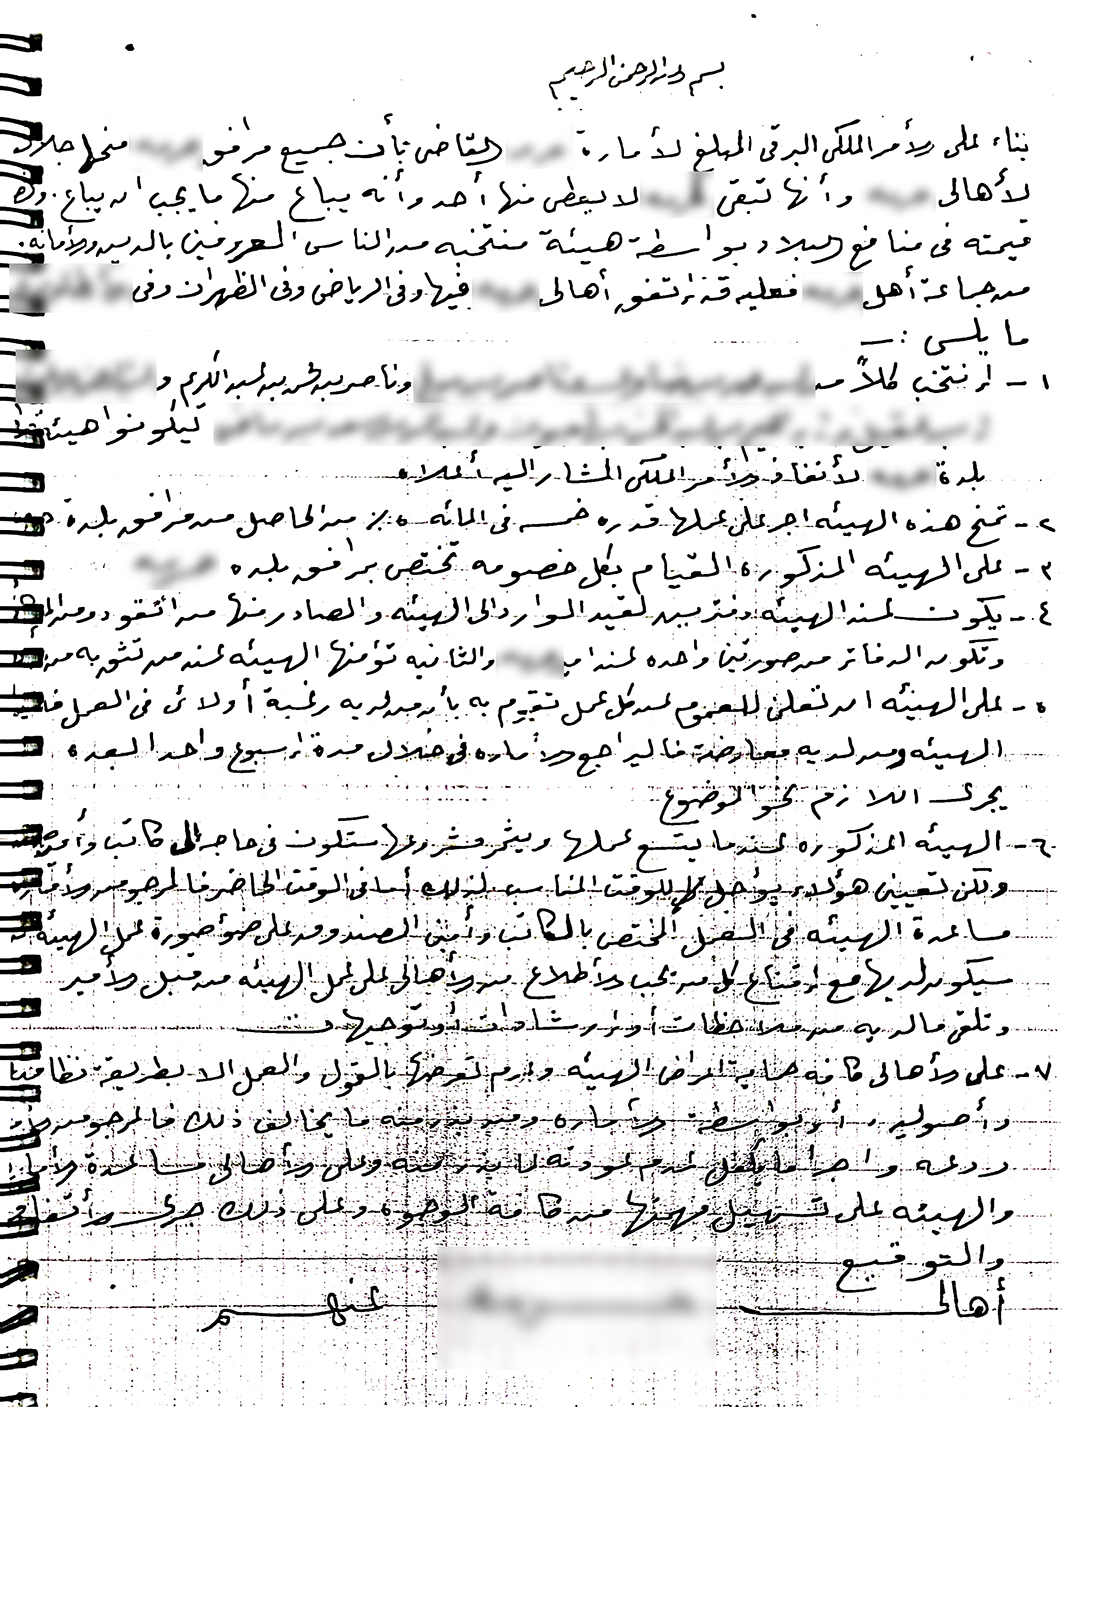 بسم الله الرحمن الرحيم
بناء على الأمر الملكي البرقي المبلغ لأمارة القاضي بأن جميع مرافق منحها جلالة
لأهالي وأنها تبقى لا يعطى منها أحد وأنه يباع منها ما يجب ان يباع
قيمته في منافع البلاد بواسطة هيئة منتخبه من الناس المعروفين بالدين والأمانة.
من جماعة أهل فعليه قد اتفق أهالي فيها وفي الرياض وفي الظهران وفي
ما يلي :ـ
١ - انتخب كلاً من وناصر بن محمد بن عبد الكريم و
ليكونوا هيئة
بلدة لأنفاذ الأمر الملكي المشار اليه أعلاه
٢ - تمنح هذه الهيئه اجر على عملها قدره خمسه في المائه ٥٪ من الحاصل من مرافق بلدة
٣ - على الهيئه المذكوره القيام بكل خصومه تختص بمرافق بلده
٤ - يكون عند الهيئه دفترين لقيد الوارد الى الهيئه والصادر منها من النقود ومن
وتكون الدفاتر من صورتين واحده عند امير والثانيه تؤمنها الهيئه عند من تثق به من
٥ - على الهيئه ان تعلن للعموم عن كل عمل تقوم به بأن من لديه رغبة أولا في العمل
الهيئه ومن لديه معارضة فاليراجع الأماره في خلال مدة اسبوع واحد ا لبعده
يجرى اللازم نحو الموضوع
٦ - الهيئه المذكوره عندما يتسع عملها ويثمر مشروعها ستكون في حاجه الى كاتب وأمين
ولكن تعيين هؤلاء يؤجل للوقت المناسب لذلك أما في الوقت الحاضر فالمرجو من الأماره
مساعدة الهيئه في العمل المختص بالكاتب وأمين الصندوق على ضوء صورة عمل الهيئة
سيكون لديها مع اقناع كل من يحب الأطلاع من الأهالي على عمل الهيئه من قبل الأمير
وتلقي مالديه من ملاحظات أو ارشادات أو توجيهات
٧ - على الأهالي كافه حماية اعراض الهيئه وعدم تعرضها بالقول والعمل الا بطريقة نظامية
وأصوليه أو بواسطة الأماره ومن يبدر منه ما يخالف ذلك فالمرجو من
ردعه واجراء ما يكفل عدم عودته لما بدر منه وعلى الأهالي مساعدة
والهيئه على تسهيل مهمتها من كافة الوجوه وعلى ذلك جرى الأتفاق
والتوقيع
أهالي عنهم